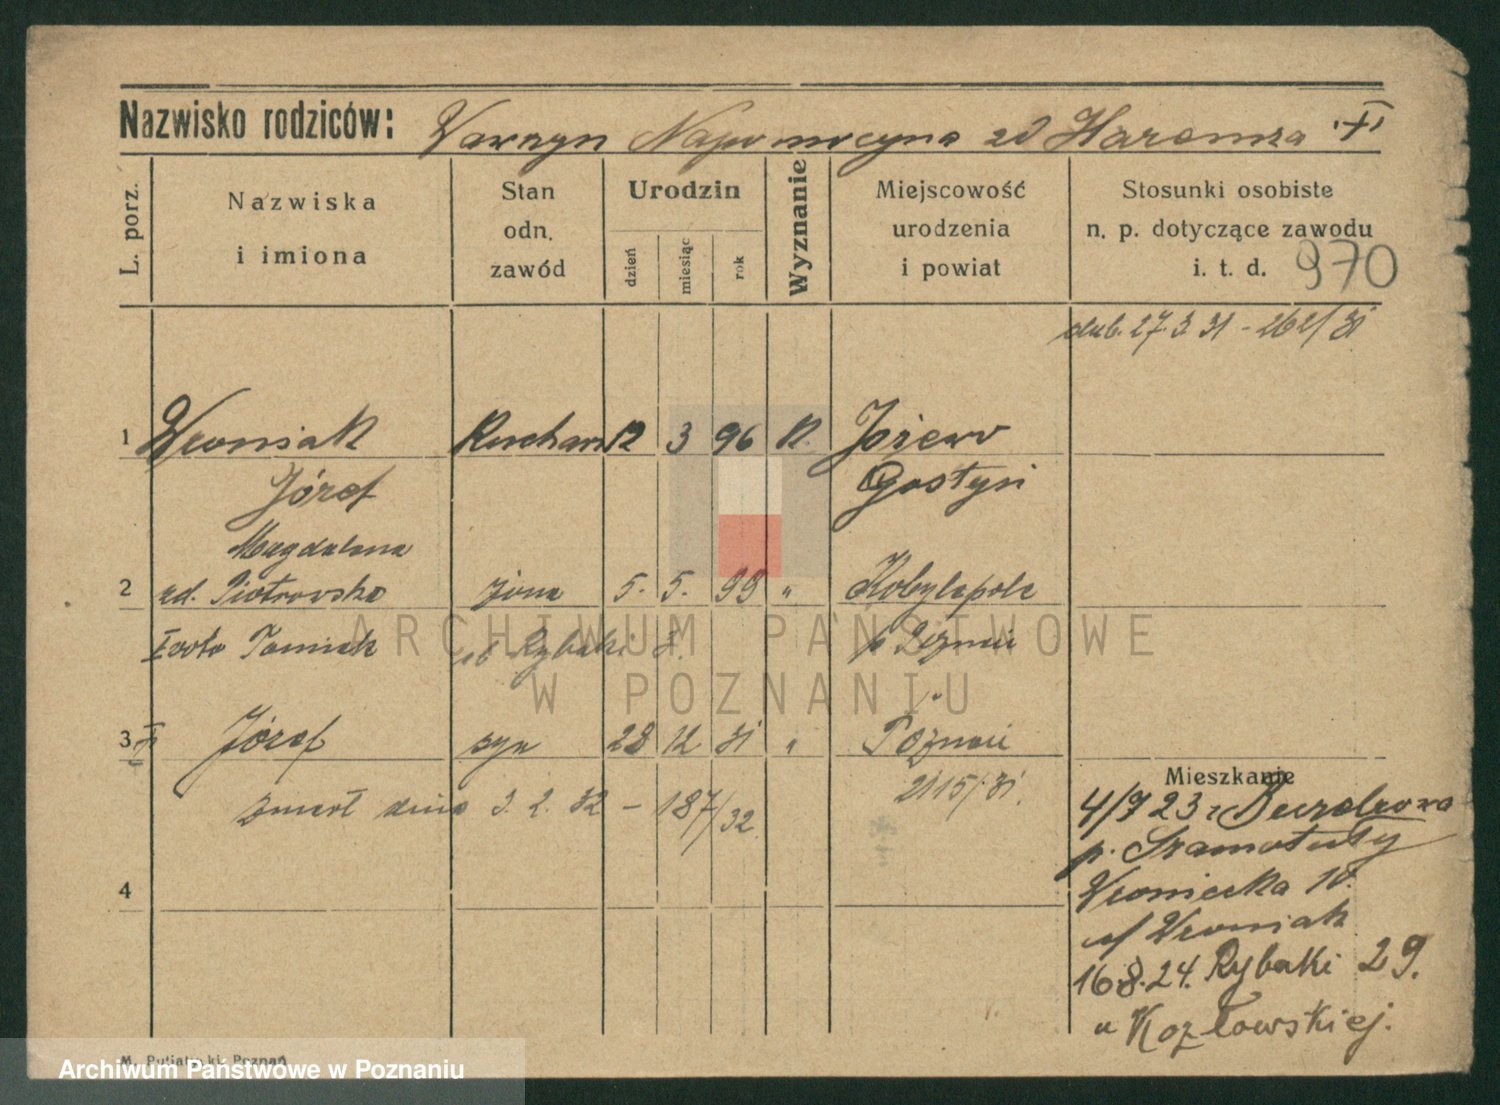 Nazwisko rodziców: Wawrzyn Napomocyna zd Haremza
L. porz.
Nazwiska i imiona
Stan odn. zawód
Urodzin
dzień miesiąc rok
Wyznanie
Miejscowość urodzenia i powiat
Stosunki osobiste n. p. dotyczące zawodu i. t. d. 970
ślub. 27. 3. 31 - 262/31
1 Wroniak 12 3 96 K. Jeżewo
Józef Gostyń
Magdalena
2 zd. Piotrowska żona 5. 5. 99 " Kobylepole
I voto Tomiak Rybaki p Poznań
3 Józef syn 28 12 31 " Poznań
zmarł dnia 3. 2. 32 - 187/32 2115/31.
Mieszkanie
4/9 23 z
p. Szamotuły
Wroniecka 10.
u/ Wroniak
4
16.8.24. Rybaki 29.
u Kozłowskiej.
M. Putiatycki, Poznań
ARCHIWUM PAŃSTWOWE
W POZNANIU
Archiwum Państwowe w Poznaniu